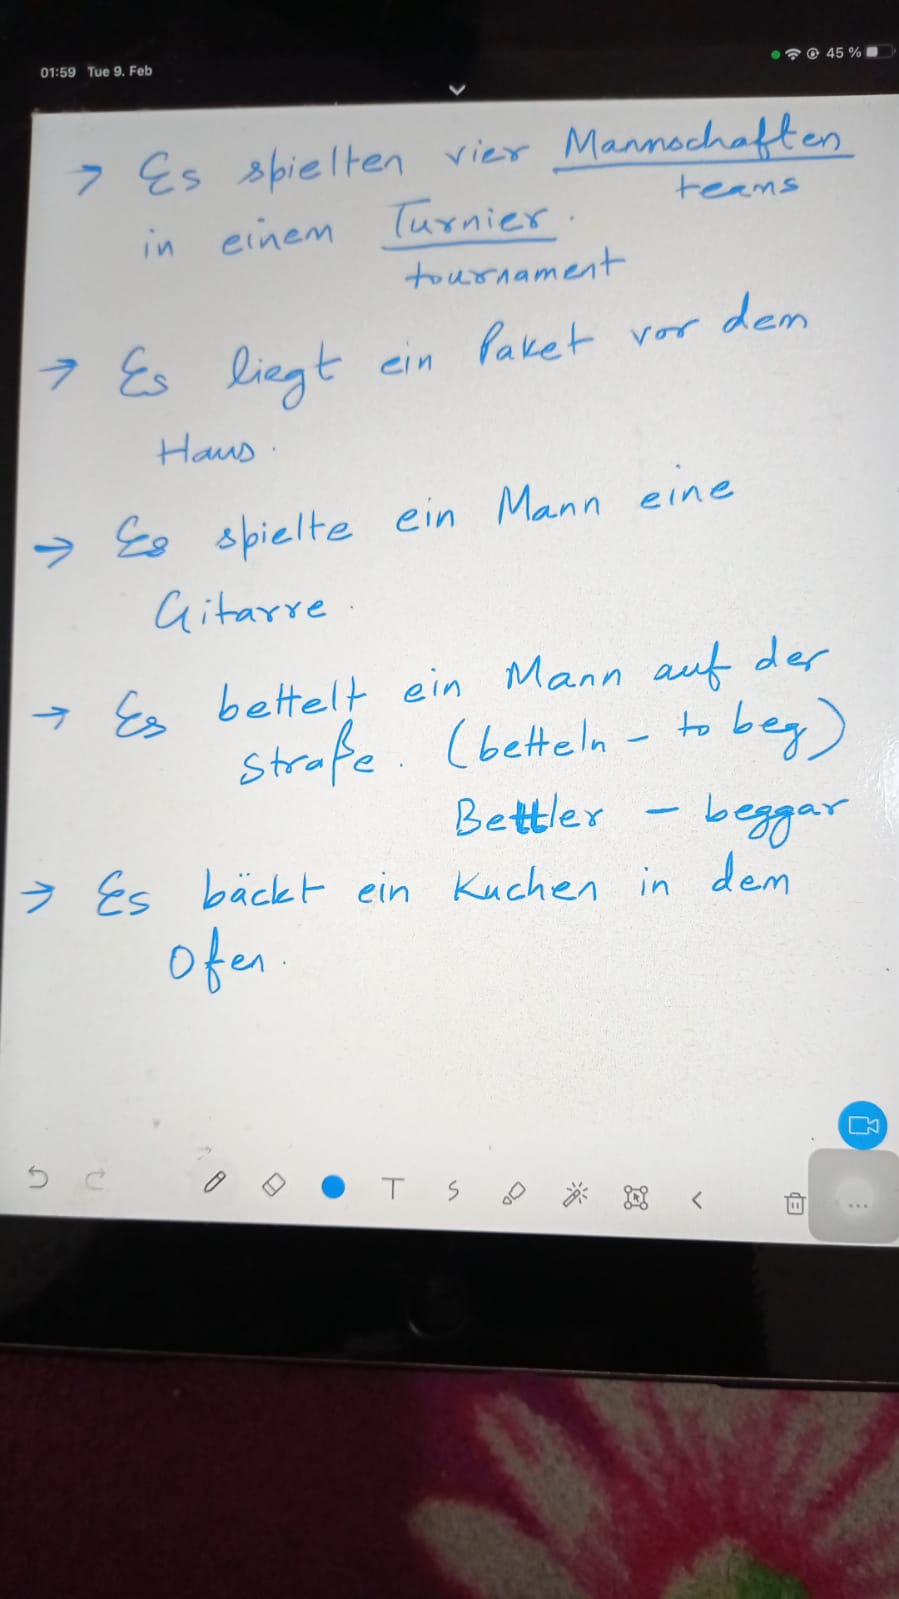 01:59 Tue 9. Feb
45 %
→ Es spielten vier Mannschaften
teams
in einem Turnier.
tournament
→ Es liegt ein Paket vor dem
Haus.
→ Es spielte ein Mann eine
Gitarre.
→ Es bettelt ein Mann auf der
Straße. (betteln - to beg)
Bettler - beggar
→ Es bäckt ein Kuchen in dem
Ofen.
T
S